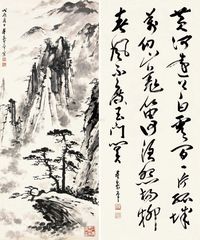 黃河遠上白雲間一片孤城
萬仞山羌笛何須怨楊柳
春風不度玉門關
董壽平